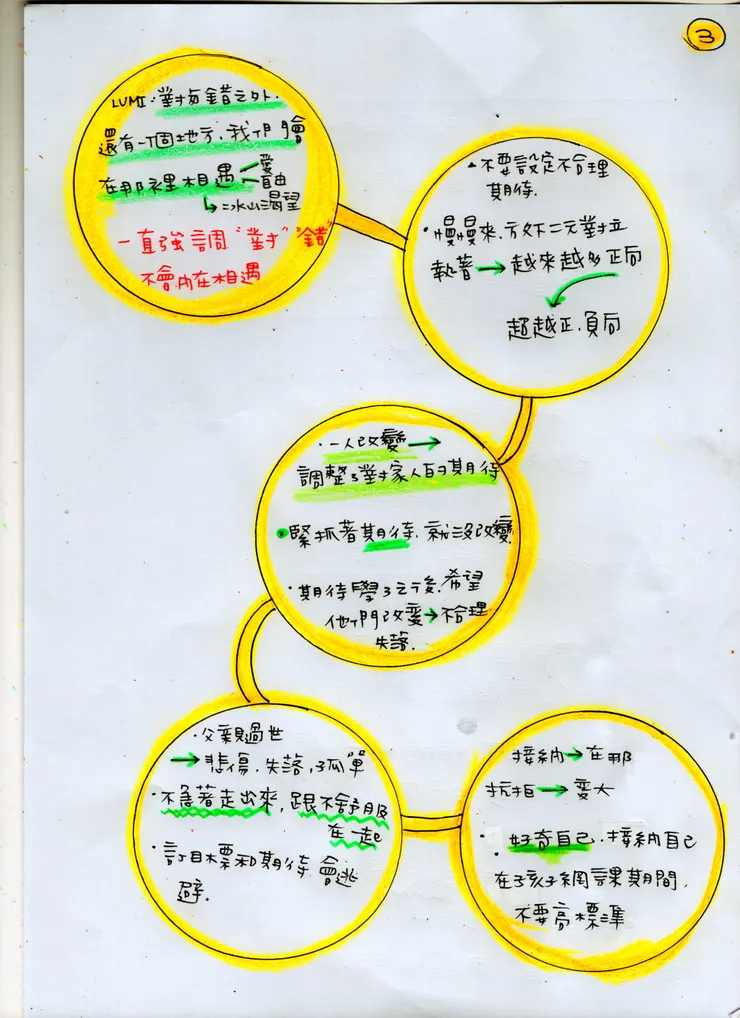 3
LUMI·對與錯之外.
還有一個地方.我們會
在那裡相遇 愛
自由
→冰山渴望
一直強調"對""錯"
不會內在相遇
·不要設定不合理
期待.
·慢慢來.放下二元對立
執著→越來越多正向
超越正.負向
·一人改變→
調整了對家人的期待
·緊抓著期待.就沒改變
·期待學了之後.希望
他們改變→不合理
失落.
·父親過世
→悲傷.失落,孤單
·不急著走出來,跟不舒服
在一起
·訂目標和期待.會逃
避.
接納→在那
抗拒→變大
·好奇自己.接納自己
在孩子網課期間,
不要高標準